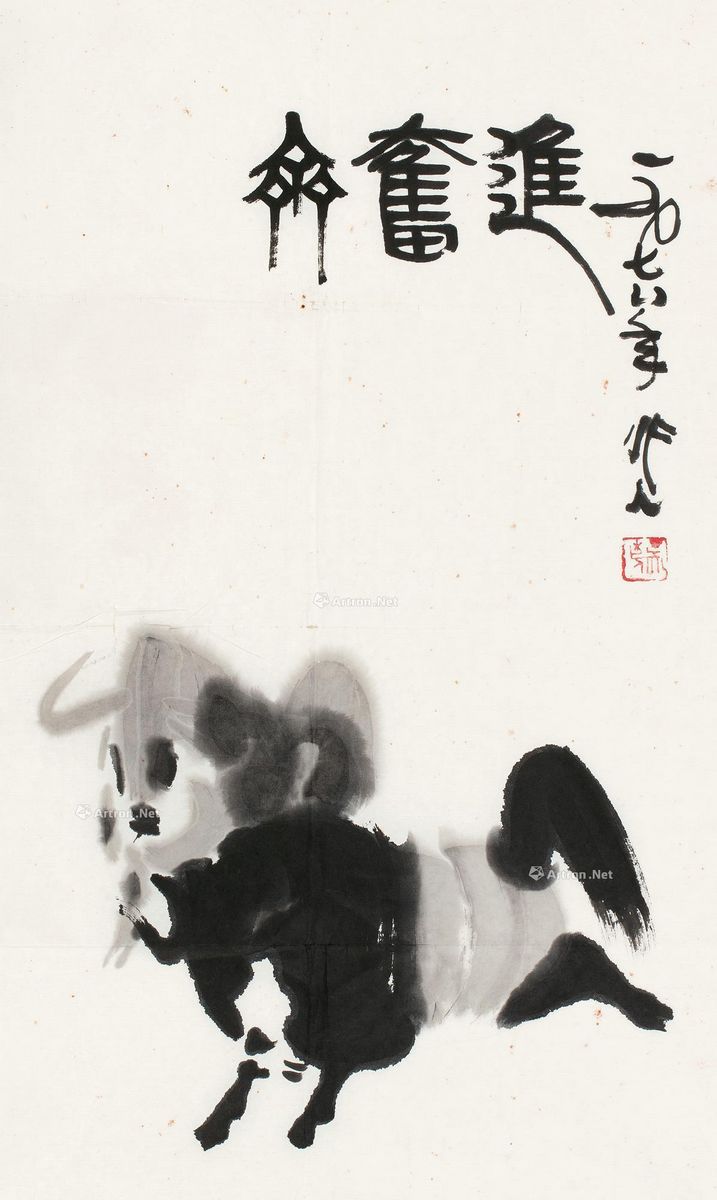 齊奮進
一九七八年 作人
Artron.Net
Artron.Net
Artron.Net